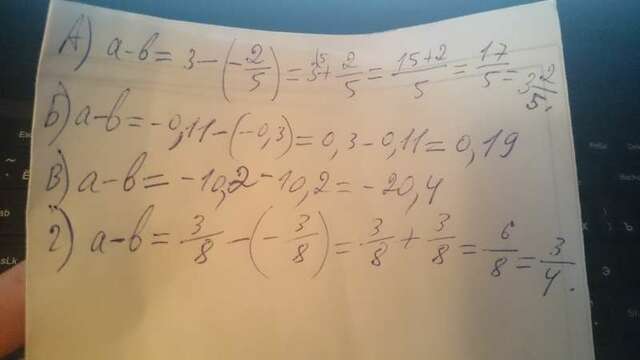 А) a-b = 3 - (-2/5) = 15/5 + 2/5 = 15+2/5 = 17/5 = 3 2/5.
Б) a-b = -0,11 - (-0,3) = 0,3 - 0,11 = 0,19
В) a-b = -10,2 - 10,2 = -20,4
Г) a-b = 3/8 - (-3/8) = 3/8 + 3/8 = 6/8 = 3/4.